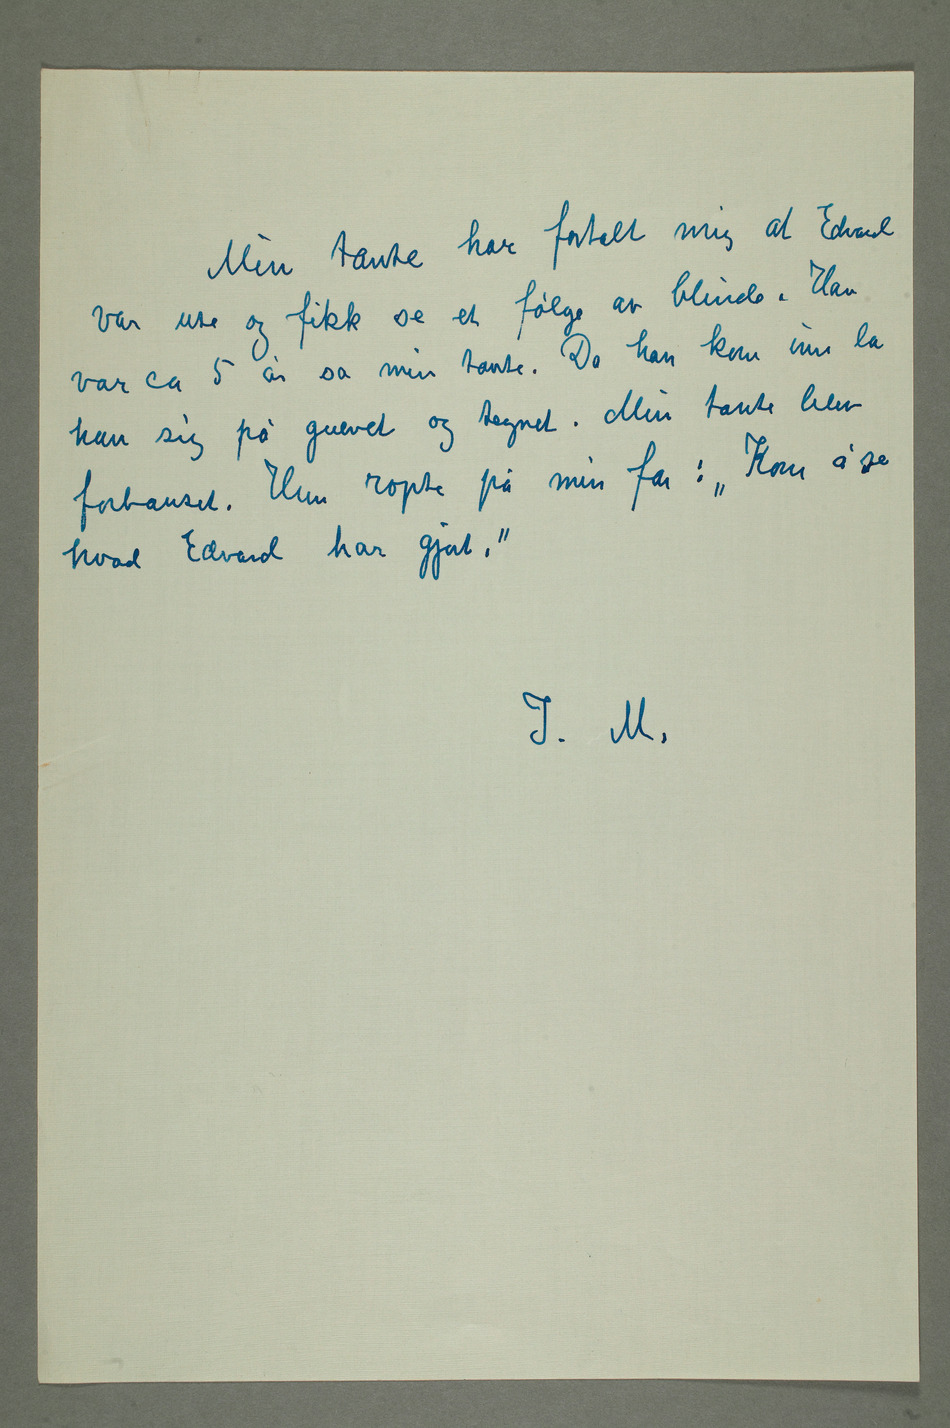 Min tante har fortalt mig at Edvard
var ute og fikk se et følge av blinde. Han
var ca 5 år sa min tante. Da han kom inn la
han sig på guevet og tegnet. Min tante blev
forbauset. Hun ropte på min far: „Kom å se
hvad Edvard har gjort."
I. M.